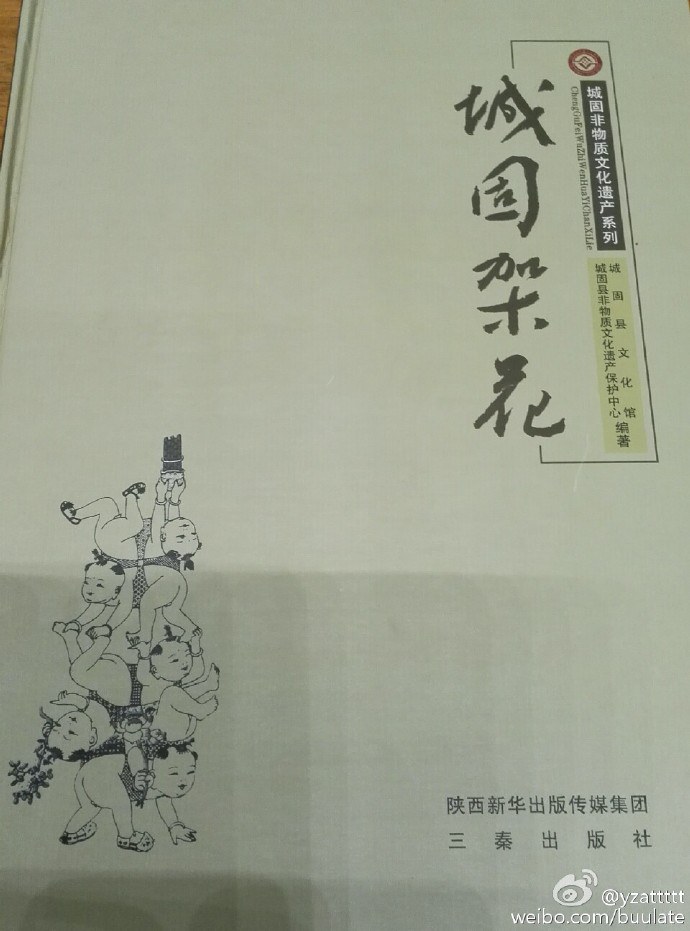 城固非物质文化遗产系列
ChengGuFeiWuZhiWenHuaYiChanXiLie
城固架花
城固县文化馆
城固县非物质文化遗产保护中心
编著
陕西新华出版传媒集团
三秦出版社
@yzattttt
weibo.com/buulate